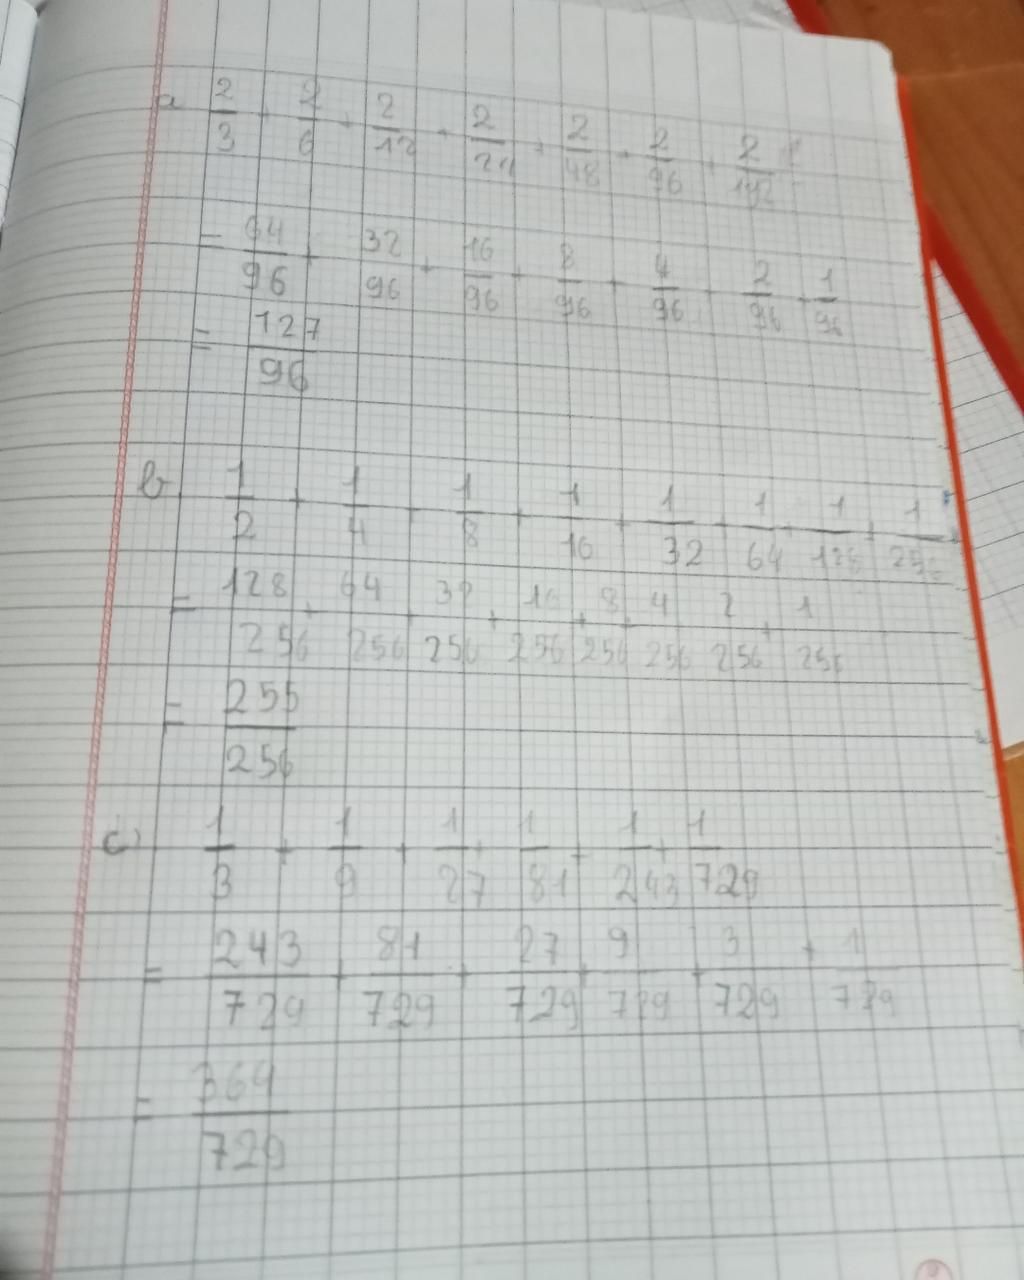 a 2/3 + 2/6 + 2/12 + 2/24 + 2/48 + 2/96 + 2/192
= 64/96 + 32/96 + 16/96 + 8/96 + 4/96 + 2/96 + 1/96
= 127/96
b 1/2 + 1/4 + 1/8 + 1/16 + 1/32 + 1/64 + 1/128 + 1/256
= 128/256 + 64/256 + 32/256 + 16/256 + 8/256 + 4/256 + 2/256 + 1/256
= 255/256
c) 1/3 + 1/9 + 1/27 + 1/81 + 1/243 + 1/729
= 243/729 + 81/729 + 27/729 + 9/729 + 3/729 + 1/729
= 364/729